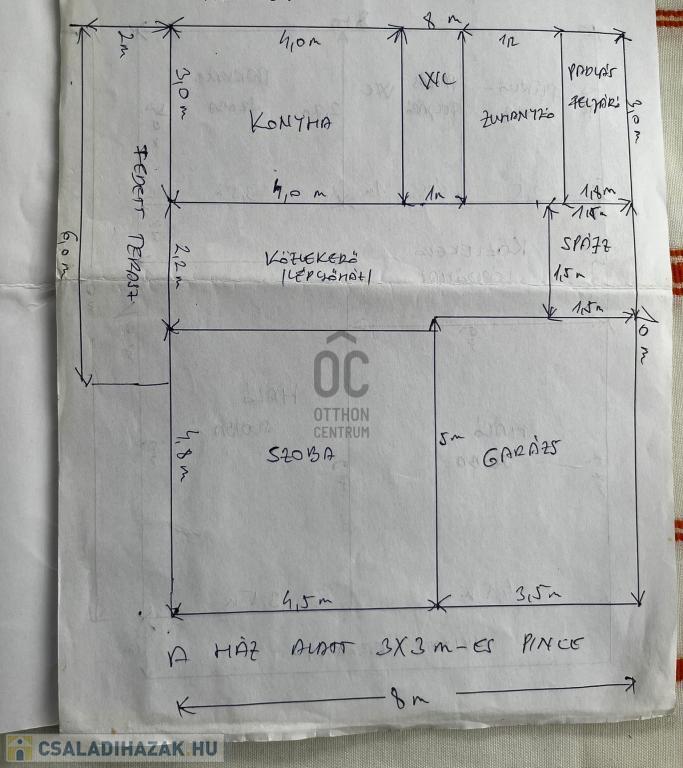 8 m
2m
4,0 m
1,2
3,0 m
KONYHA
WC
ZUHANYZÓ
PADLÁS
FELJÁRÓ
3,0 m
4,0 m
1m
1,8m
1,5m
FEDETT TERASZ
6,0 m
2,2 m
KÖZLEKEDŐ
(LÉPCSŐHÁZ)
SPÁJZ
1,5m
1,5m
ÔC
OTTHON
CENTRUM
4,8 m
SZOBA
5m
GARÁZS
4,5 m
3,5 m
A HÁZ ALATT 3X3 m-ES PINCE
8 m
CSALADIHAZAK.HU